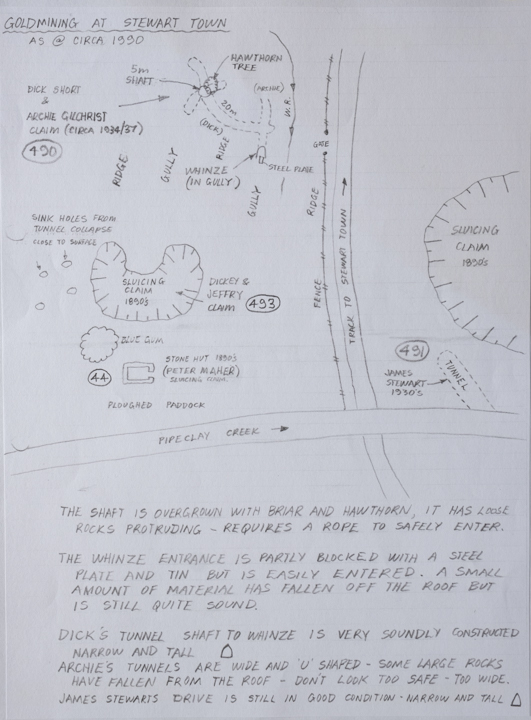 GOLDMINING AT STEWART TOWN
AS @ CIRCA 1990
HAWTHORN
TREE
5m
SHAFT
DICK SHORT
&
ARCHIE GILCHRIST
CLAIM (CIRCA 1934/37)
490
20m
(ARCHIE)
(DICK)
W.R.
RIDGE
GULLY
RIDGE
WHINZE
(IN GULLY)
STEEL PLATE
GULLY
GATE
RIDGE
FENCE
TRACK TO STEWART TOWN
SLUICING
CLAIM
1890's
SINK HOLES FROM
TUNNEL COLLAPSE
CLOSE TO SURFACE
SLUICING
CLAIM
1890's
DICKEY &
JEFFRY
CLAIM
493
BLUE GUM
44
STONE HUT 1890's
(PETER MAHER)
SLUICING CLAIM.
PLOUGHED PADDOCK
491
JAMES
STEWART
1930's
TUNNEL
PIPECLAY CREEK
THE SHAFT IS OVERGROWN WITH BRIAR AND HAWTHORN, IT HAS LOOSE
ROCKS PROTRUDING - REQUIRES A ROPE TO SAFELY ENTER.
THE WHINZE ENTRANCE IS PARTLY BLOCKED WITH A STEEL
PLATE AND TIN BUT IS EASILY ENTERED. A SMALL
AMOUNT OF MATERIAL HAS FALLEN OFF THE ROOF BUT
IS STILL QUITE SOUND.
DICK'S TUNNEL SHAFT TO WHINZE IS VERY SOUNDLY CONSTRUCTED
NARROW AND TALL
ARCHIE'S TUNNELS ARE WIDE AND 'U' SHAPED - SOME LARGE ROCKS
HAVE FALLEN FROM THE ROOF - DON'T LOOK TOO SAFE - TOO WIDE.
JAMES STEWARTS DRIVE IS STILL IN GOOD CONDITION - NARROW AND TALL